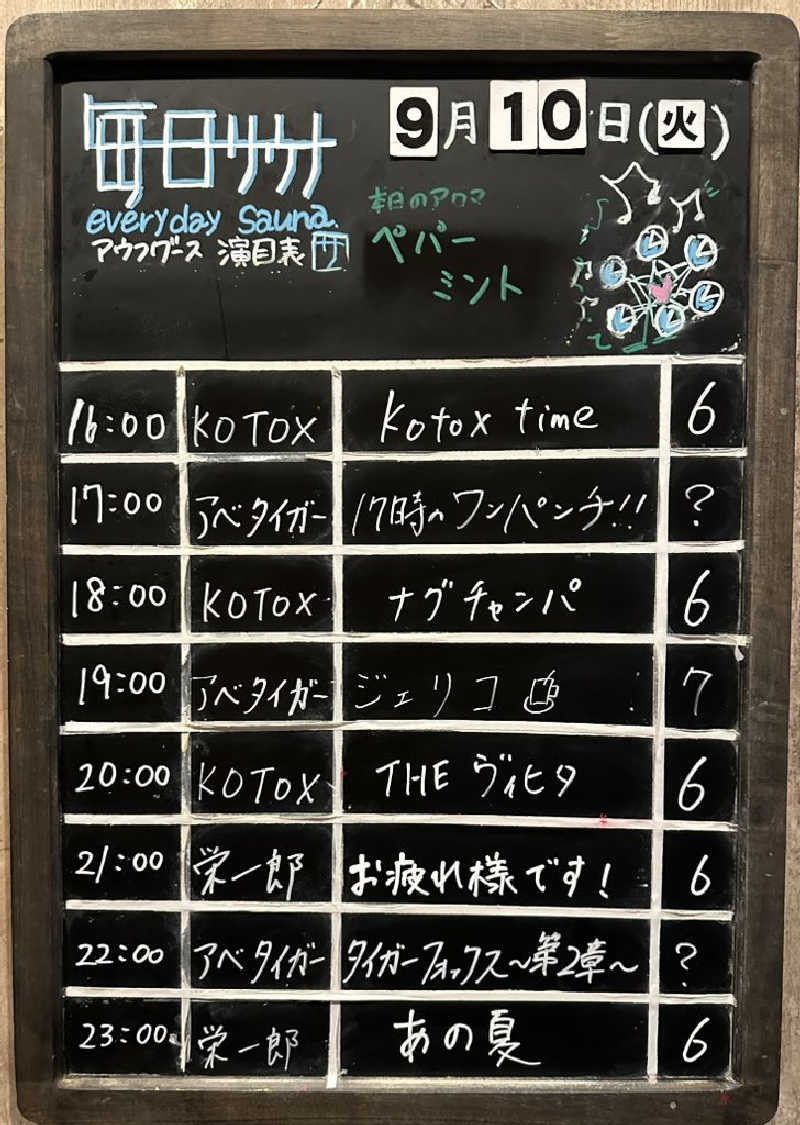 毎日サウナ
everyday sauna
アウフグース 演目表 サ
9月10日(火)
本日のアロマ
ペパー
ミント
16:00 KOTOX Kotox time 6
17:00 アベタイガー 17時のワンパンチ!! ?
18:00 KOTOX ナグチャンパ 6
19:00 アベタイガー ジェリコ 7
20:00 KOTOX THE ヴィヒタ 6
21:00 栄一郎 お疲れ様です! 6
22:00 アベタイガー タイガーフォックス〜第2章〜 ?
23:00 栄一郎 あの夏 6